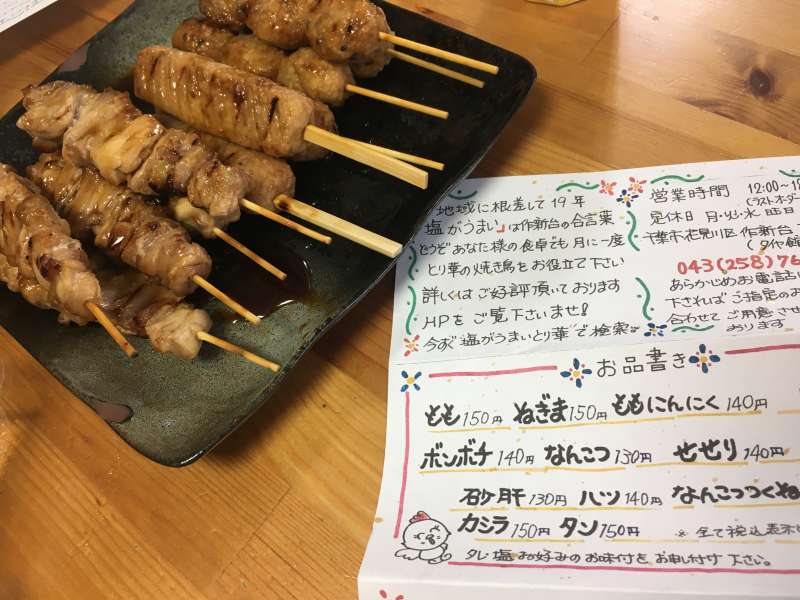 地域に根差して19年
塩がうまい」は作新台の合言葉
どうぞあなた様の食卓でも月に一度
とり華の焼き鳥をお役立て下さい
詳しくはご好評頂いております
HPをご覧下さいませ!
今すぐ"塩がうまいとり華"で検索
営業時間 12:00~
(ラストオーダー
定休日 月・火・水曜日
千葉市花見川区作新台
043(258)76
あらかじめお電話
下さればご指定のお
合わせてご用意させ
おります
お品書き
もも150円 ねぎま150円 ももにんにく140円
ボンボチ140円 なんこつ130円 せせり140円
砂ケ肝130円 ハツ140円 なんこつつくね
カシラ150円 タン150円 ※全て税込表示
タレ塩お好みのお味付をお申し付け下さい。